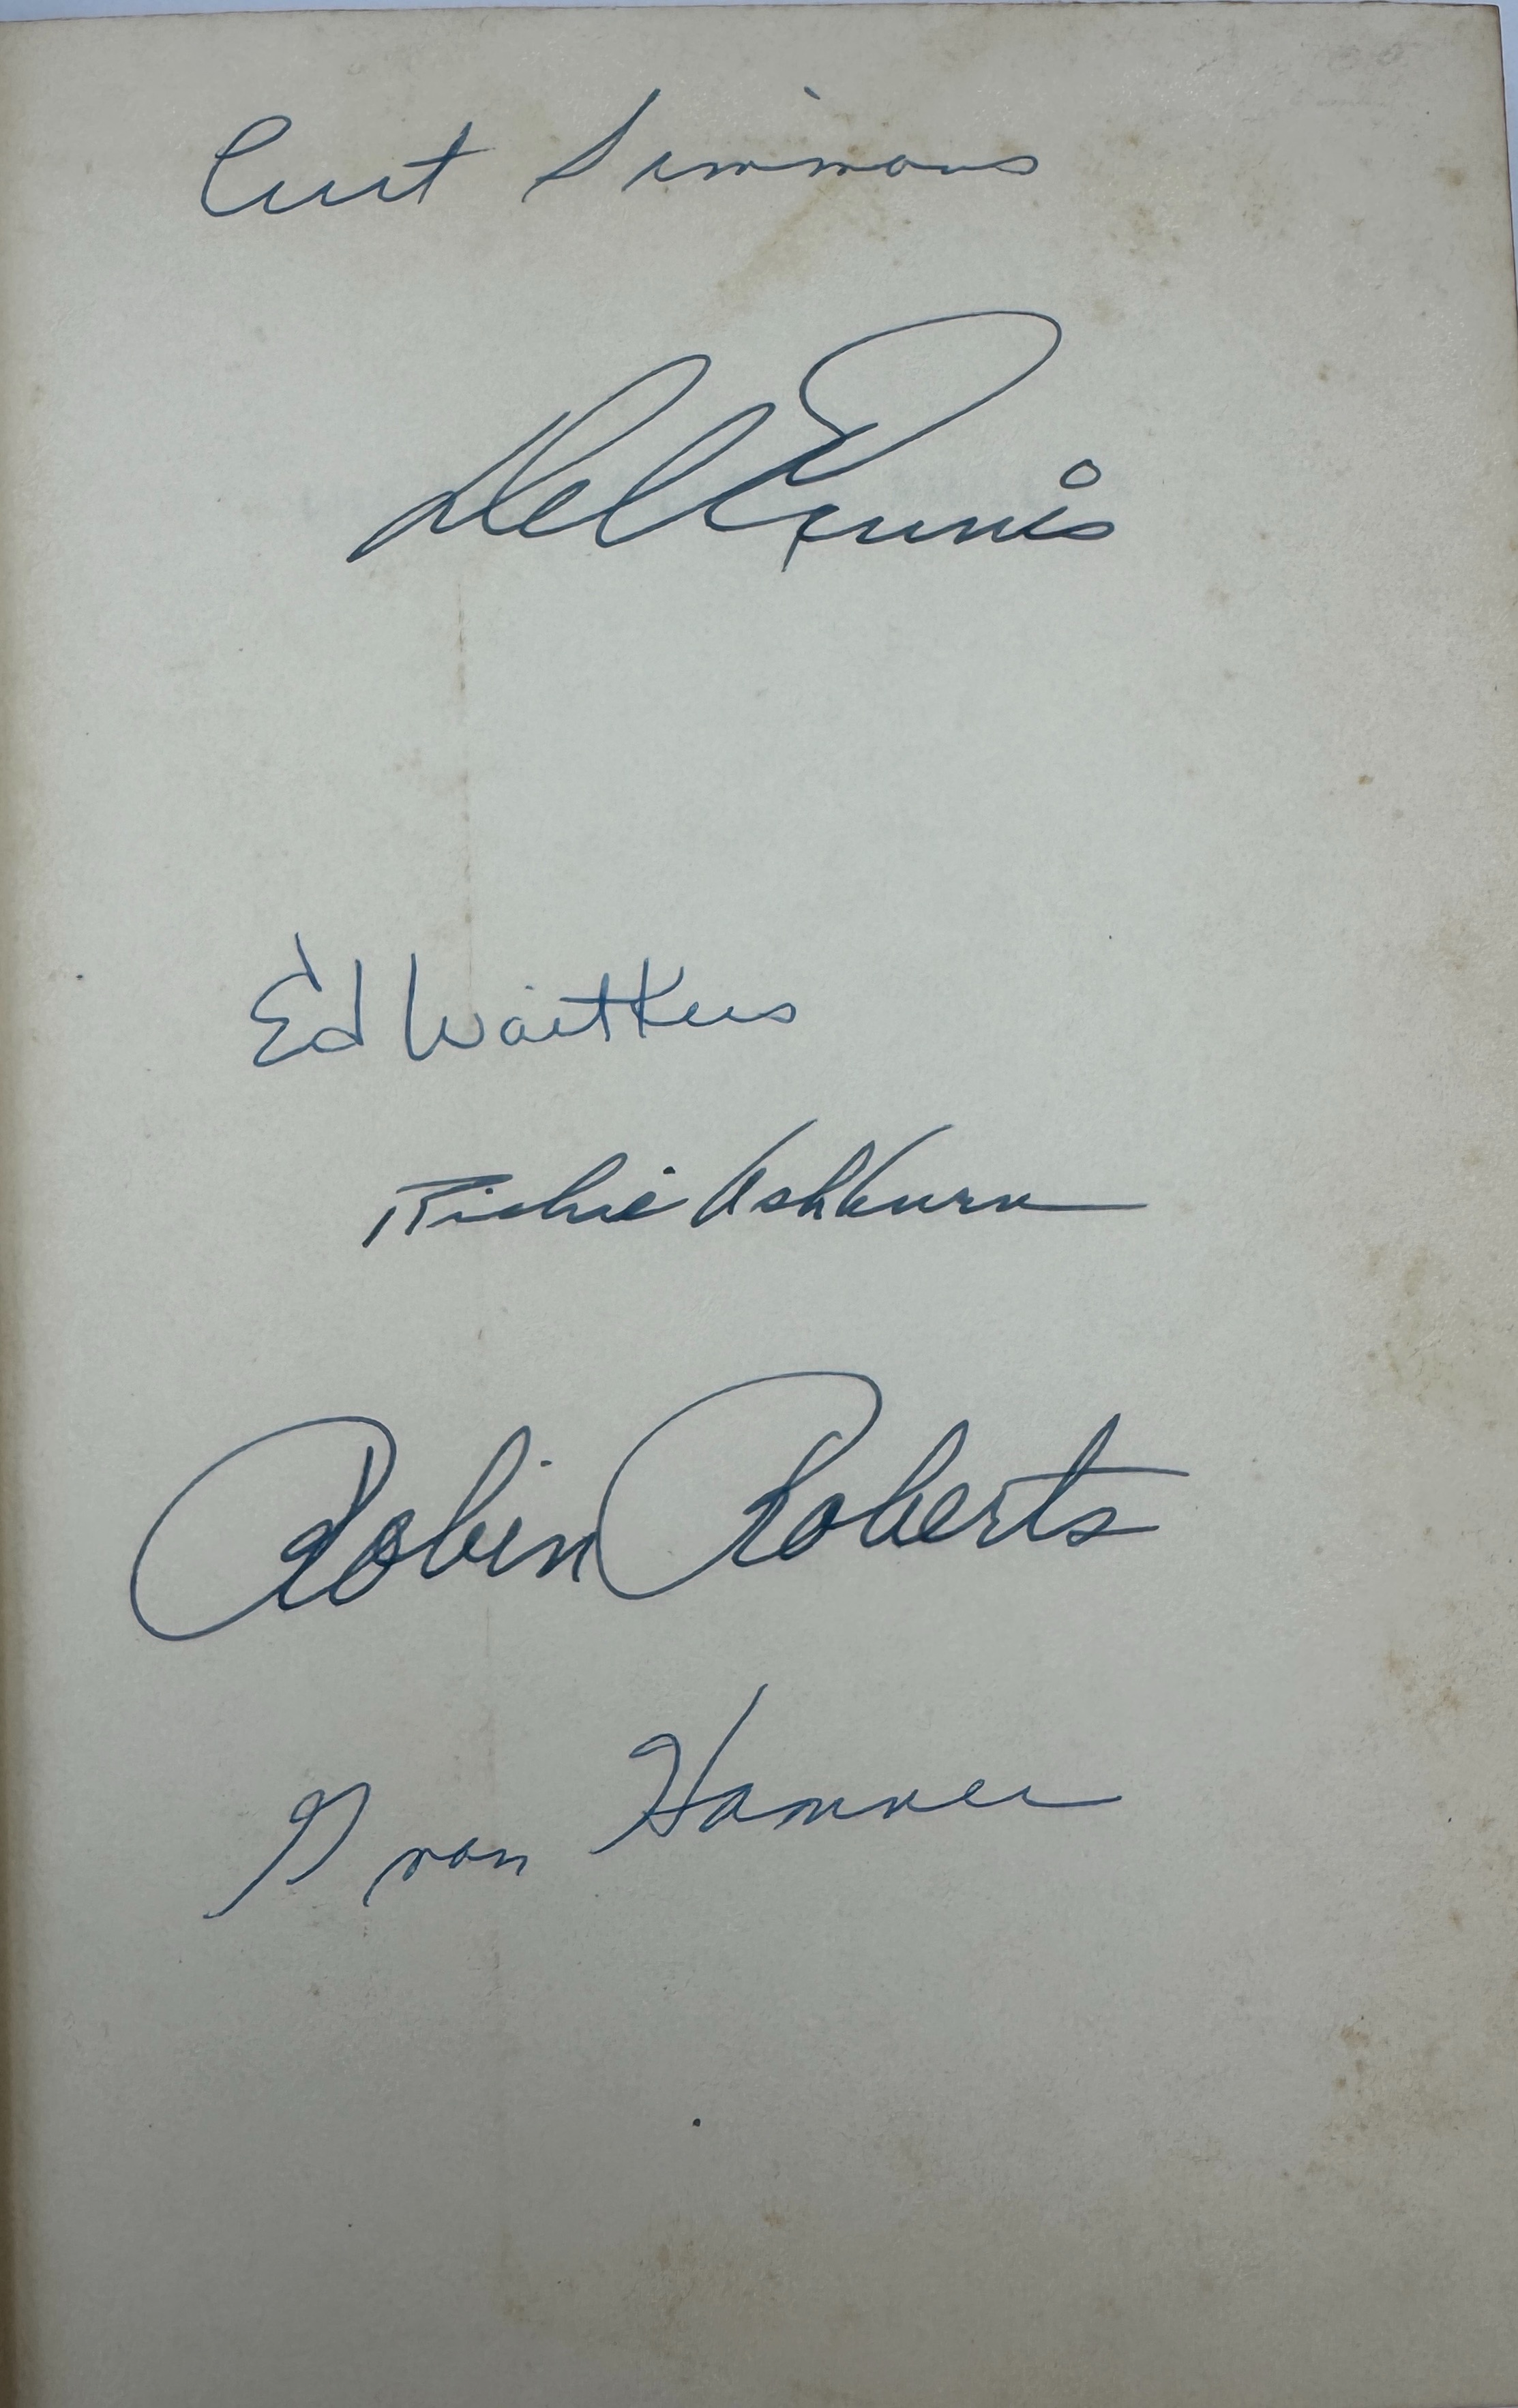 Curt Simmons
Del Ennis
Ed Waitkus
Richie Ashburn
Robin Roberts
Gran Hamner